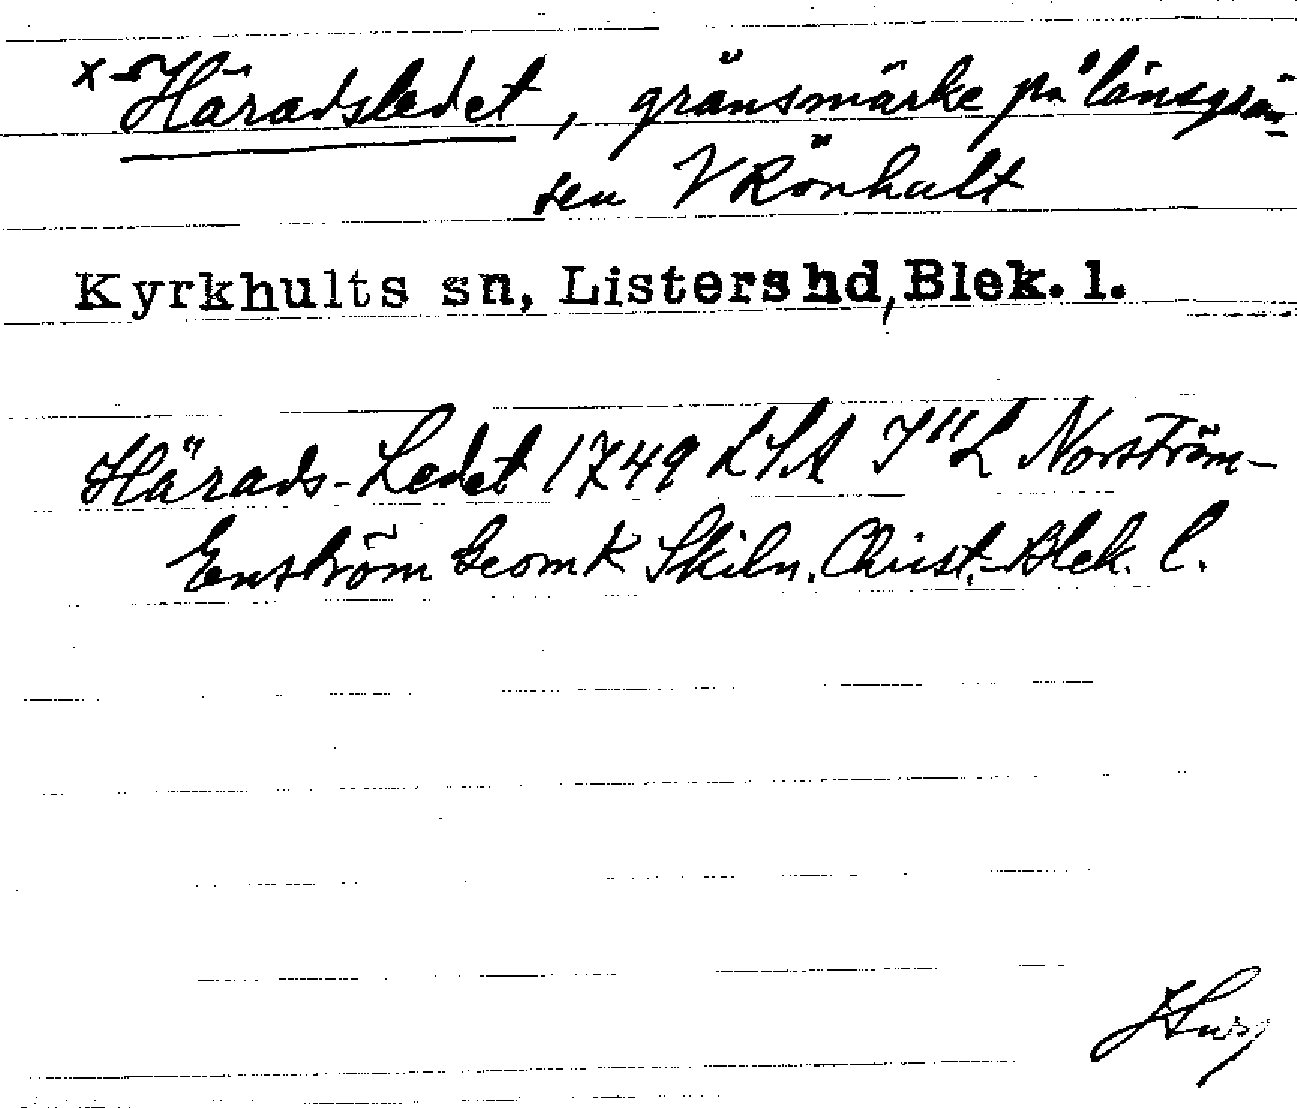 x Häradsledet, gränsmärke på länsgrän-
sen V Rönhult
Kyrkhults sn, Listers hd, Blek. l.
Härads-Ledet 1749 LSA I"L Norström-
Enström Geom K Skiln. Christ.-Blek. l.